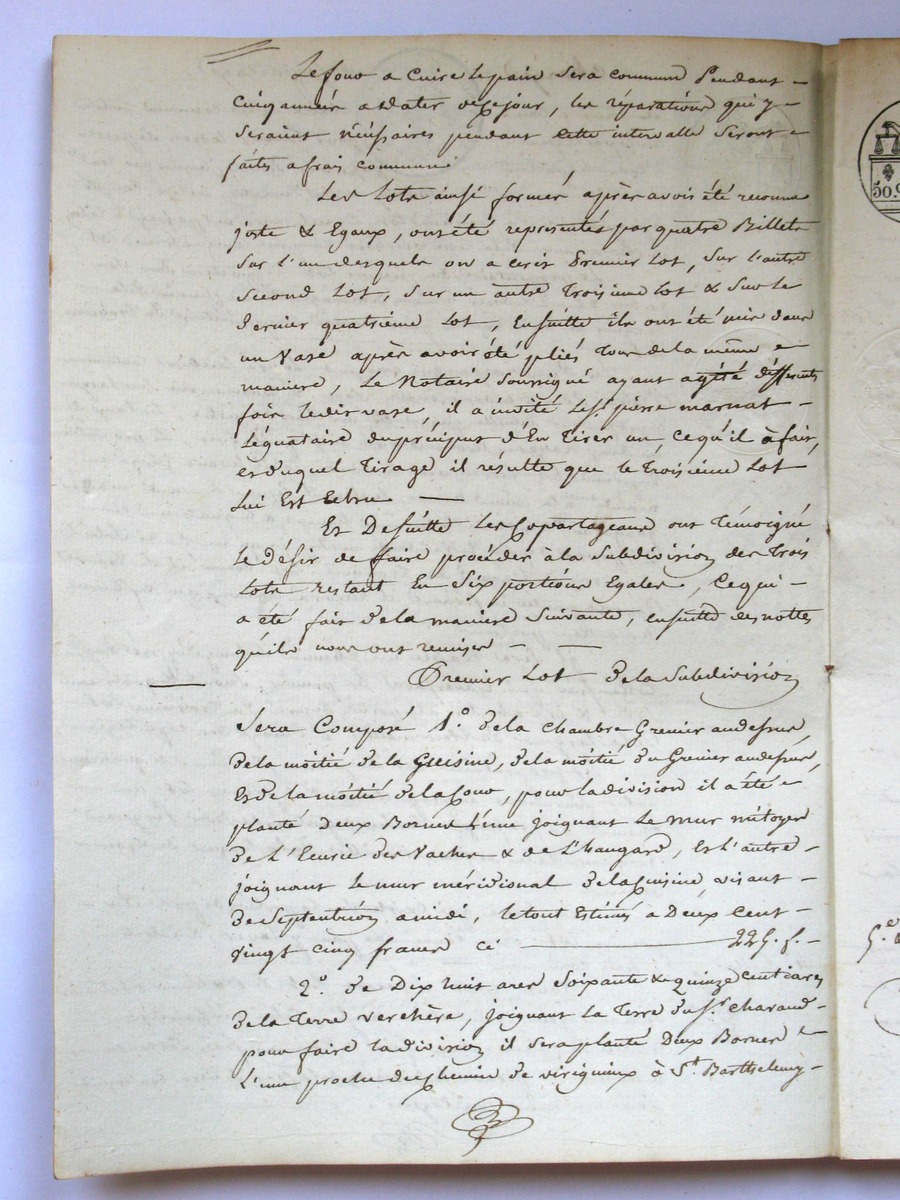 Le four a Cuire le pain Sera commun Pendant
Cinq années a dater de Ce jour, les réparations qui y
seraient nécéssaires pendant cette intervalle Seront
faites a frais communs
Les Lots ainsi formés après avoir été reconnu
juste & Egaux, ont été représentés par quatre Billets
sur l'un desquels on a écrit Premier Lot, Sur l'autre
Second Lot, Sur un autre Troisieme Lot & Sur le
Dernier quatriéme Lot, Ensuitte ils ont été mis dans
un Vase après avoir été pliés Tous de la même
maniere, Le Notaire Soussigné ayant agité différents
fois ledit vase, il a invité le Sr. pierre marnat
Légataire du préciput d'En Tirer un, ce qu'il à fait,
et duquel Tirage il résulte que le Troisiéme Lot
Lui Est Echu
Et De suitte Les Copartageans ont Témoigné
le désir de faire procéder à la Subdivision des Trois
Lots restant En Six portions Egales, Ce qui
a été fait de la maniere Suivante, ensuitte des nottes
qu'ils nous ont remises
Premier Lot De la Subdivision
Sera Composé 1.° De la chambre Grenier au dessus,
De la moitié de la Cuisine, de la moitié du Grenier au dessus,
Et de la moitié de la Cour, pour la division il a été
planté Deux Bornes L'une joignant Le mur mitoyen
De L'Ecurie des Vaches & de L'hangard, Et L'autre
joignant Le mur méridional de la Cuisine, visant
De Septentrion a midi, le tout Estimé a Deux Cent
vingt cinq francs ci 225. f.
2.° De Dix huit ares Soixante & quinze Centiares
De la Terre verchère, joignant La Terre du Sr. charand
pour faire la division il Sera planté Deux Bornes
L'une proche du Chemin De virigneux à St. Barthelemy
50.